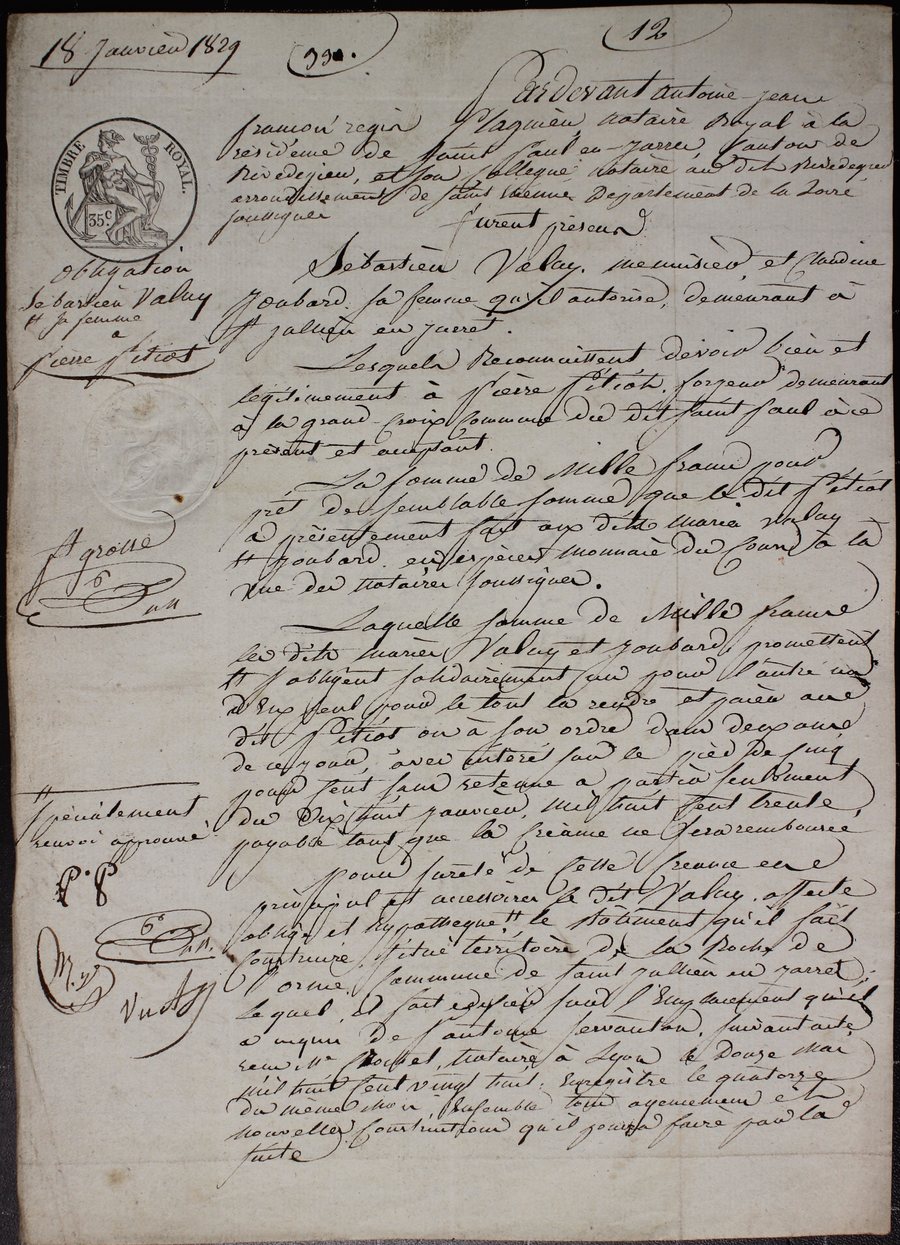 18 Janvier 1829
33.
12
TIMBRE ROYAL.
35c
Obligation
Sebastien Valuy
et sa femme
a
Pierre Pitiot
Pardevant antoine-jean
françois regis notaire Royal à la
residence de Saint Paul en-jarret, Canton de
Rivedegier, et son Collegue, Notaire au dit Rivedegier
arrondissement de Saint Etienne Departement de la Loire
soussignes
furent présens
Sébastien Valuy, menuisier, et Claudine
Joubard sa femme qu'il autorise, demeurant à
St jullien en jarret.
Lesquels Reconnaissent devoir bien et
légitimement à Pierre Pitiot, forgeur demeurant
à la grand-Croix Commune du dit Saint Paul à ce
présent et acceptant.
La somme de Mille francs pour
prêt de semblable somme que le dit Pitiot
a présentement fait aux dits mariés Valuy
et Joubard en especes monnaie du Cours à la
vue des Notaires soussignes.
ft grosse
Laquelle somme de Mille francs
les dits mariés Valuy et Joubard, promettent
et s'obligent solidairement un pour l'autre un
d'Eux seul pour le tout la rendre et païer au
dit Pitiot ou à son ordre dans deux ans
de ce jour, avec intérêt sur le pied de cinq
pour Cent sans retenue a partir seulement
du Dix huit janvier, mil huit Cent trente,
payable tant que la Créance ne sera remboursée,
Pour sureté de Cette Creance en
principal et accessoires le dit Valuy, affecte
oblige et hypotheque tt le Bâtiment qu'il fait
Construire, Situé territoire de la Roche de
l'orme, Commune de Saint jullien en jarret,
Lequel est fait edifier sur l'Emplacement qu'il
a acquis de St antoine Servanton, suivant acte
reçu Me notaire à Lyon le Douze Mai
mil huit Cent vingt huit, Enregistré le quatorze
du même mois, Ensemble tous agencemens et
nouvelles Constructions qu'il pourra faire par la
suite
tt
spécialement
renvoi approuvé
P. P